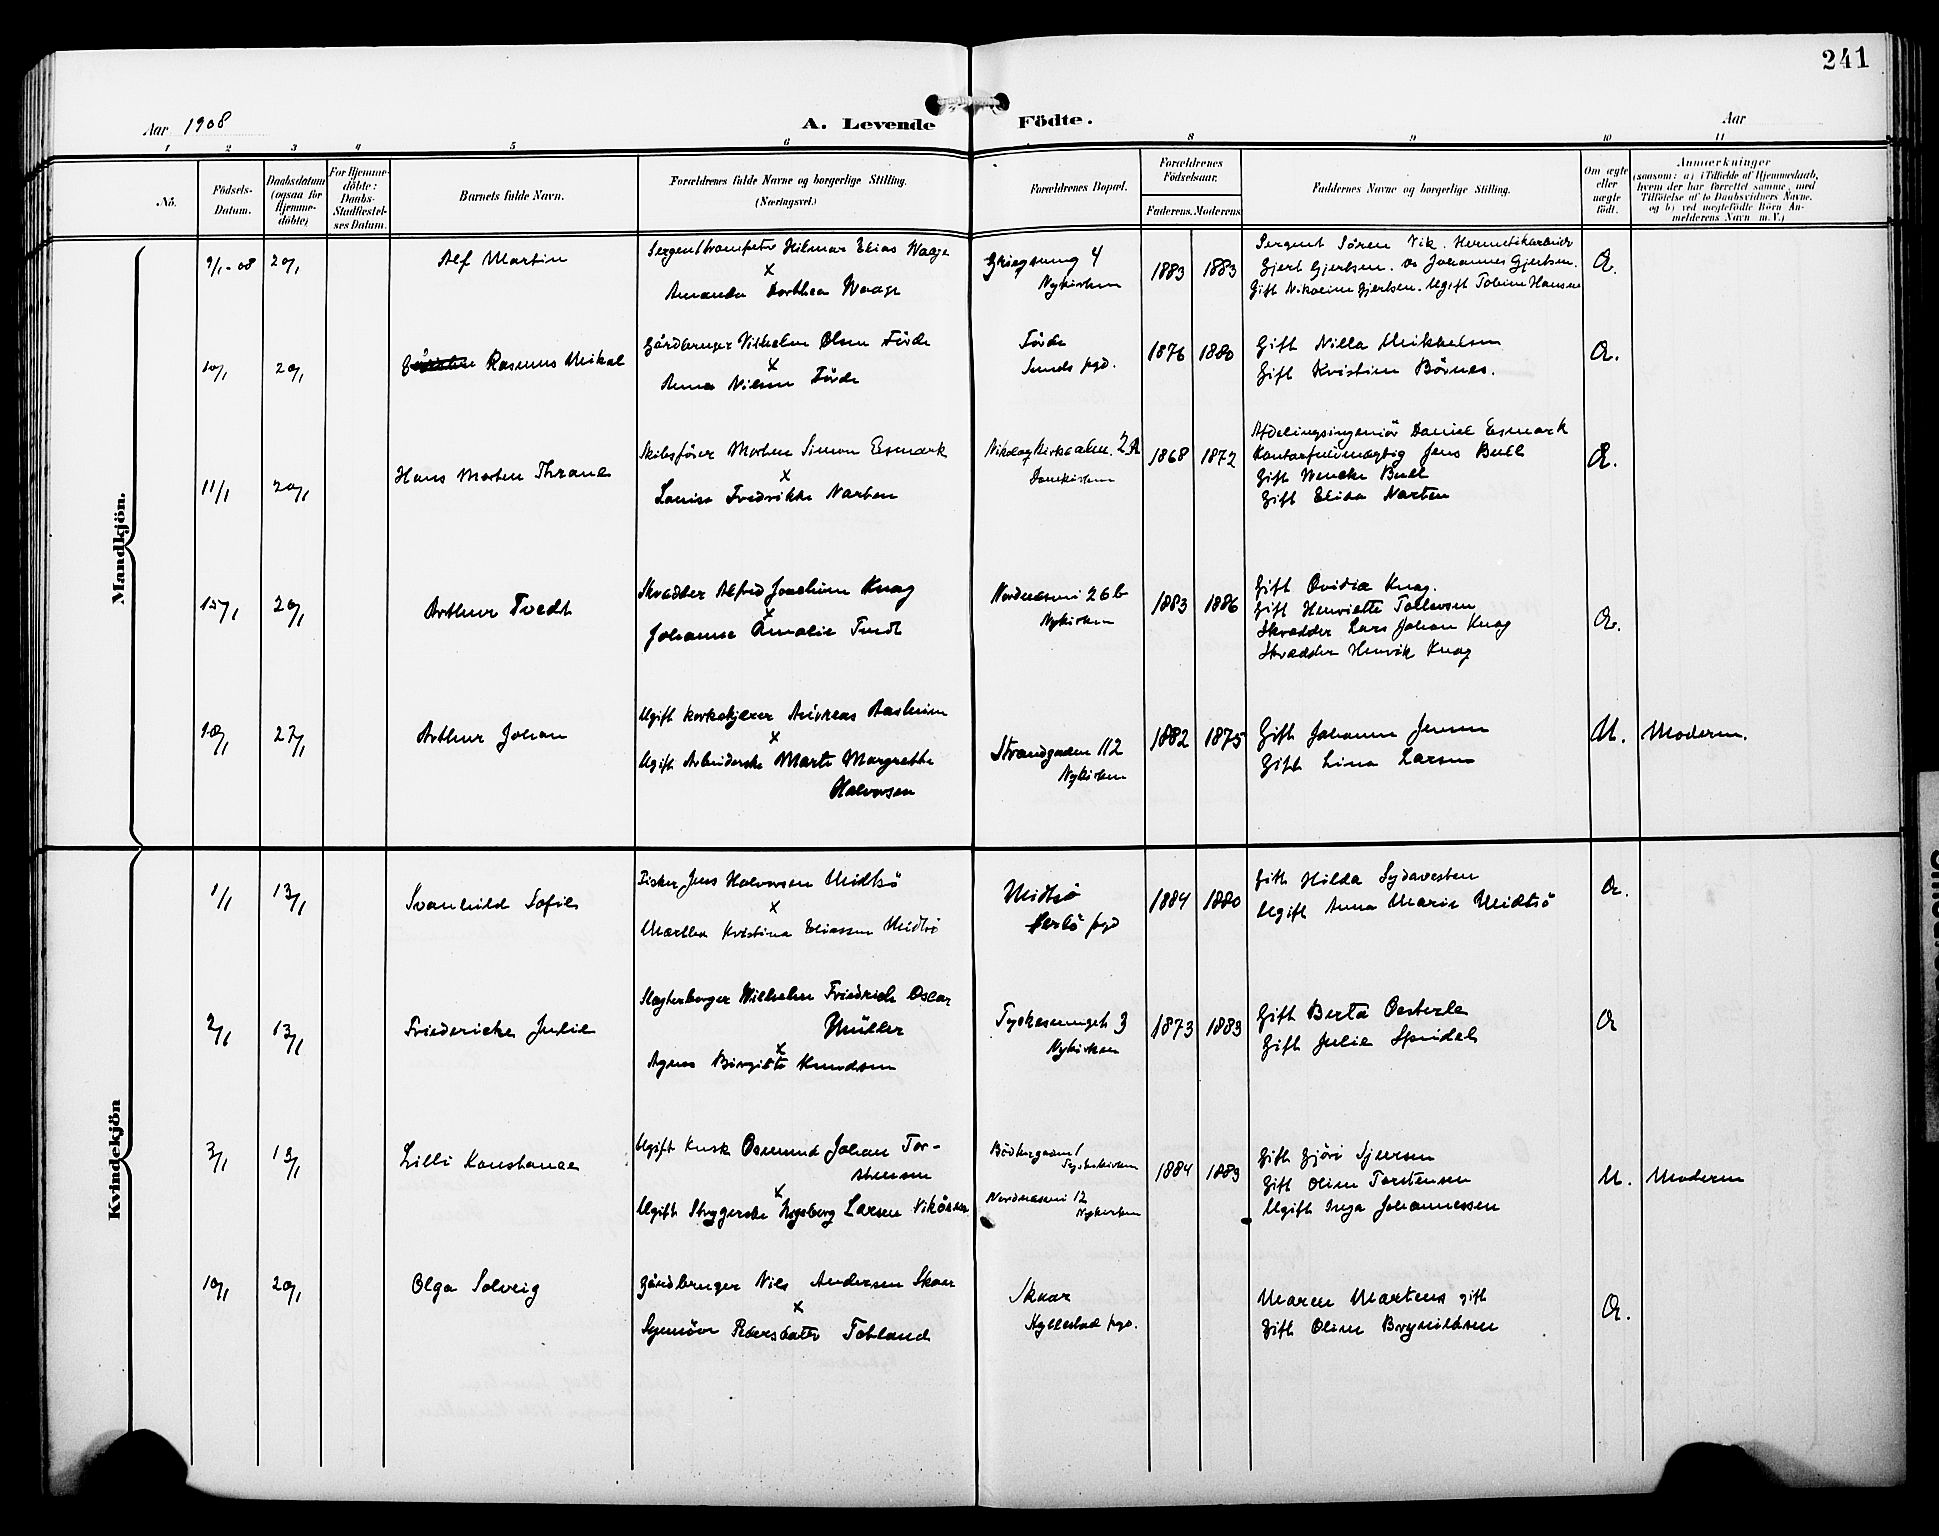 241
Aar 1908
A. Levende Födte.
Aar
1 2 3 4 5 6 8 9 10 11
No.
Födsels-Datum.
Daabsdatum (ogsaa for Hjemmedöbte)
For Hjemmedöbte: Daabs-Stadfæstelses Datum.
Barnets fulde Navn.
Forældrenes fulde Navne og borgerlige Stilling. (Næringsvei.)
Forældrenes Bopæl.
Forældrenes Födselsaar.
Faderens. Moderens.
Faddernes Navne og borgerlige Stilling.
Om ægte eller uægte født.
Anmærkninger
(saasom: a) i Tilfælde af Hjemmedaab, hvem der har forrettet samme, med Tilföielse af to Daabsvidners Navne. og b) ved uægtefödte Börn Anmelderens Navn m. V.)
Mandkjön.
9/1-08 20/1 Alf Martin
Sergenttrompeter Hilmar Elias Waage
x
Amanda Dorthea Waage
4
Nykirken
1883 1883
Sergent Sören Vik. Hermetikarbeider
Gjert Gjertsen. do Johannes Gjertsen.
Gift Nikoline Gjertsen. Ugift Tobine Hansen
Æ.
10/1 20/1 Rasmus Mikal
Gårdbruger Vilhelm Olsen Förde
x
Anna Nilsen Förde
Förde
Sunds pgd.
1876 1880
Gift Nilla Mikkelsen
Gift Kristine Börnes.
Æ.
11/1 20/1 Hans Morten Thrane
Skibsförer Morten Simon Esmark
x
Louise Fredrikke Narten
Nikolaikirkealm. 2A
Domkirken
1868 1872
Afdelingsingeniör Daniel Esmark
Kontorfuldmægtig Jens Bull
Gift Wencke Bull
Gift Elida Narten
Æ.
15/1 20/1 Arthur Tvedt
Skrædder Alfred Joachim Knag
x
Johanne Amalie Tvedt
Nordnæsvei 26b
Nykirken
1883 1886
Gift Ovidia Knag.
Gift Henriette Tollevsen
Skrædder Lars Johan Knag
Skrædder Henrik Knag
Æ.
18/1 27/1 Arthur Johan
Ugift korkskjærer Andreas Aasheim
x
Ugift Arbeiderske Marte Margrethe
Halvorsen
Strandgaden 112
Nykirken
1882 1875
Gift Johanne Jensen
Gift Lina Larsen
U. Moderen.
Kvindekjön
1/1 13/1 Svanhild Sofie
Fisker Jens Halvorsen Midtsö
x
Martha Kristina Eliassen Midtsö
Midtsö
Herlö pgd
1884 1880
Gift Hilda Sydavesten
Ugift Anna Marie Midtsö
Æ.
2/1 13/1 Friedericke Julie
Slagterborger Wilhelm Friedrich Oscar
Müller
x
Agnes Birgitte Knudsen
Tyskesmuget 3
Nykirken
1873 1883
Gift Berta Oesterle
Gift Julie Speidel
Æ
3/1 19/1 Lilli Konstance
Ugift Kusk Osmund Johan Tor-
stensen
x
Ugift Strygerske Ingeborg Larsen Vikören
Bödkergaden 1
Nordnæsvei 12
Nykirken
1884 1883
Gift Gjöri Sjursen
Gift Oline Torstensen
Ugift Inga Johannessen
U. Moderen
10/1 20/1 Olga Solveig
Gårdbruger Nils Andersen Skaar
x
Synnöve Tobland
Skaar
Hyllestad pgd.
Maren Martens gift
Gift Oline Brynildsen
Æ.